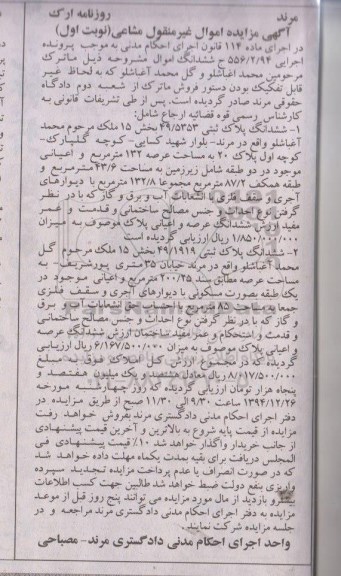 مرند
روزنامه ارک
آگهی مزایده اموال غیرمنقول مشاعی(نوبت اول)
در اجرای ماده ۱۱۴ قانون اجرای احکام مدنی به موجب پرونده
اجرایی ۵۵۶/۲/۹۴ ح ششدانگ اموال مشروحه ذیل ماترک
مرحومین محمد آغاشلو و گل محمد آغاشلو که به لحاظ غیر
قابل تفکیک بودن دستور فروش ماترک از شعبه دوم دادگاه
حقوقی مرند صادر گردیده است. پس از طی تشریفات قانونی به
کارشناس رسمی قوه قضائیه ارجاع شامل:
۱- ششدانگ پلاک ثبتی ۴۹/۵۳۵۳ بخش ۱۵ ملک مرحوم محمد
آغاشلو واقع در مرند- بلوار شهید کسایی- کوچه گلپارک-
کوچه اول پلاک ۲۰ به مساحت عرصه ۱۳۲ مترمربع و اعیانی
موجود در دو طبقه شامل زیرزمین به مساحت ۴۳/۶ مترمربع و
طبقه همکف ۸۷/۲ مترمربع مجموعا ۱۳۲/۸ مترمربع با دیوارهای
آجری و سقف فلزی با انشعابات آب و برق و گاز که با در نظر
گرفتن نوع احداث و جنس مصالح ساختمانی و قدمت و عمر
مفید ارزش ششدانگ عرصه و اعیانی پلاک موصوف به میزان
۱/۸۵۰/۰۰۰/۰۰۰ ریال ارزیابی گردیده است
۲- ششدانگ پلاک ثبتی ۴۹/۱۹۱۹ بخش ۱۵ ملک مرحوم گل
محمد آغاشلو واقع در مرند خیابان ۳۵ متری پورشریف به
مساحت عرصه مطابق سند ۲۰۰/۲۵ مترمربع و اعیانی موجود در
یک طبقه بصورت مسکونی با دیوارهای آجری و سقف فلزی
جمعا به مساحت ۸۵ مترمربع با انشعابات آب و برق
و گاز که با در نظر گرفتن نوع احداث و جنس مصالح ساختمانی
و قدمت و استحکام و عمر مفید ساختمان ارزش ششدانگ عرصه
و اعیانی پلاک موصوف به میزان ۶/۱۶۷/۵۰۰/۰۲۰ ریال ارزیابی
گردیده که در مجموع ارزش کل املاک فوق به مبلغ
۸/۰۱۷/۵۰۰/۰۰۰ ریال معادل هشتصد و یک میلیون هفتصد و
پنجاه هزار تومان ارزیابی گردیده که روز چهارشنبه مورخه
۱۳۹۴/۱۲/۲۶ ساعت ۹/۳۰ الی ۱۱/۳۰ صبح از طریق مزایده در
دفتر اجرای احکام مدنی دادگستری مرند بفروش خواهد رفت
مزایده از قیمت پایه شروع به بالاترین و آخرین قیمت پیشنهادی
از جانب خریدار واگذار خواهد شد ۱۰٪ قیمت پیشنهادی فی
المجلس دریافت برای بقیه بمدت یکماه مهلت داده خواهد شد
که در صورت انصراف یا عدم پرداخت مزایده تجدید سپرده
واریزی بنفع دولت ضبط خواهد شد طالبین جهت کسب اطلاعات
بیشتر و بازدید از مال مورد مزایده می توانند پنج روز قبل از موعد
مزایده به دفتر اجرای احکام مدنی دادگستری مرند مراجعه و در
جلسه مزایده شرکت نمایند.
واحد اجرای احکام مدنی دادگستری مرند- مصباحی